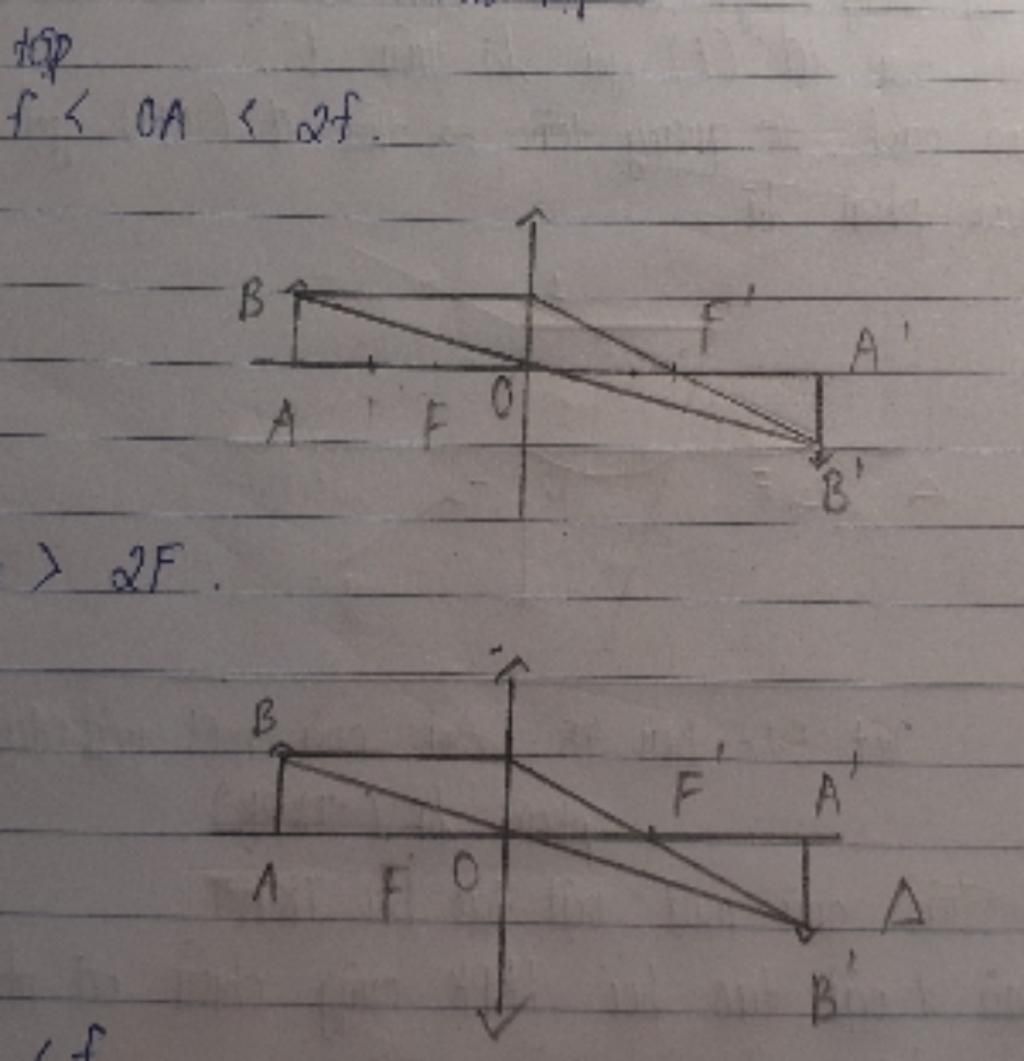 tập
f < OA < 2f.
B
F'
A'
O
A
F
B'
> 2F.
B
F'
A'
A
F
O
Δ
B'
< f